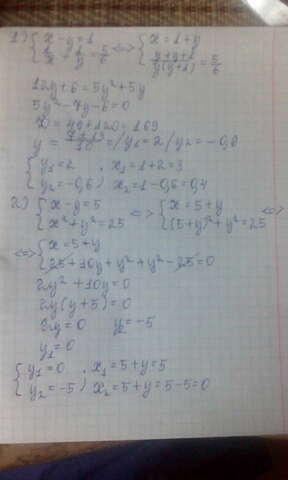 1) { x-y=1 <=> { x=1+y
{ 1/x + 1/y = 5/6 { (y+y+1)/(y(y+1)) = 5/6
12y+6=5y²+5y
5y²-7y-6=0
D=49+120=169
y = (7±13)/10 = / y₁=2 / y₂=-0,6
{ y₁=2 , x₁=1+2=3
{ y₂=-0,6 ) x₂=1-0,6=0,4
2) { x-y=5 <=> { x=5+y <=>
{ x²+y²=25 { (5+y)²+y²=25
<=> { x=5+y
{ 25+10y+y²+y²-25=0
2y²+10y=0
2y(y+5)=0
2y=0 y₂=-5
y₁=0
{ y₁=0 , x₁=5+y=5
{ y₂=-5 ) x₂=5+y=5-5=0